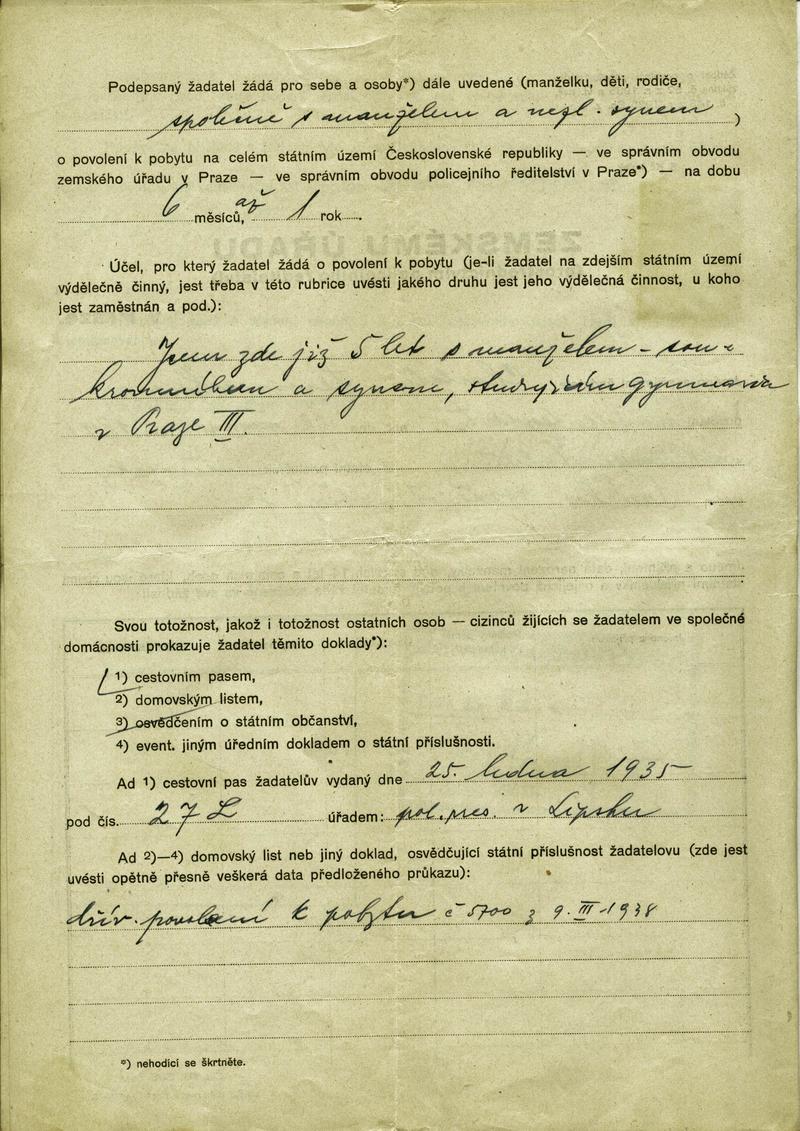 Podepsaný žadatel žádá pro sebe a osoby*) dále uvedené (manželku, děti, rodiče,
společně s manželem a nezl. synem )
o povolení k pobytu na celém státním území Československé republiky — ve správním obvodu
zemského úřadu v Praze — ve správním obvodu policejního ředitelství v Praze*) — na dobu
6 měsíců, až 1 rok
Účel, pro který žadatel žádá o povolení k pobytu (je-li žadatel na zdejším státním území
výdělečně činný, jest třeba v této rubrice uvésti jakého druhu jest jeho výdělečná činnost, u koho
jest zaměstnán a pod.):
Jsem zde již 5 let s manželem - sou-
kromníkem a synem, studujícím gymnasia
v Praze III.
Svou totožnost, jakož i totožnost ostatních osob — cizinců žijících se žadatelem ve společné
domácnosti prokazuje žadatel těmito doklady*):
1) cestovním pasem,
2) domovským listem,
3) osvědčením o státním občanství,
4) event. jiným úředním dokladem o státní příslušnosti.
Ad 1) cestovní pas žadatelův vydaný dne 25. ledna 1935
pod čís. 27 L úřadem: pol. pres. v Lipsku
Ad 2)—4) domovský list neb jiný doklad, osvědčující státní příslušnost žadatelovu (zde jest
uvésti opětně přesně veškerá data předloženého průkazu):
dřív. povolení k pobytu č 5700 z 9. III - 1938
*) nehodící se škrtněte.